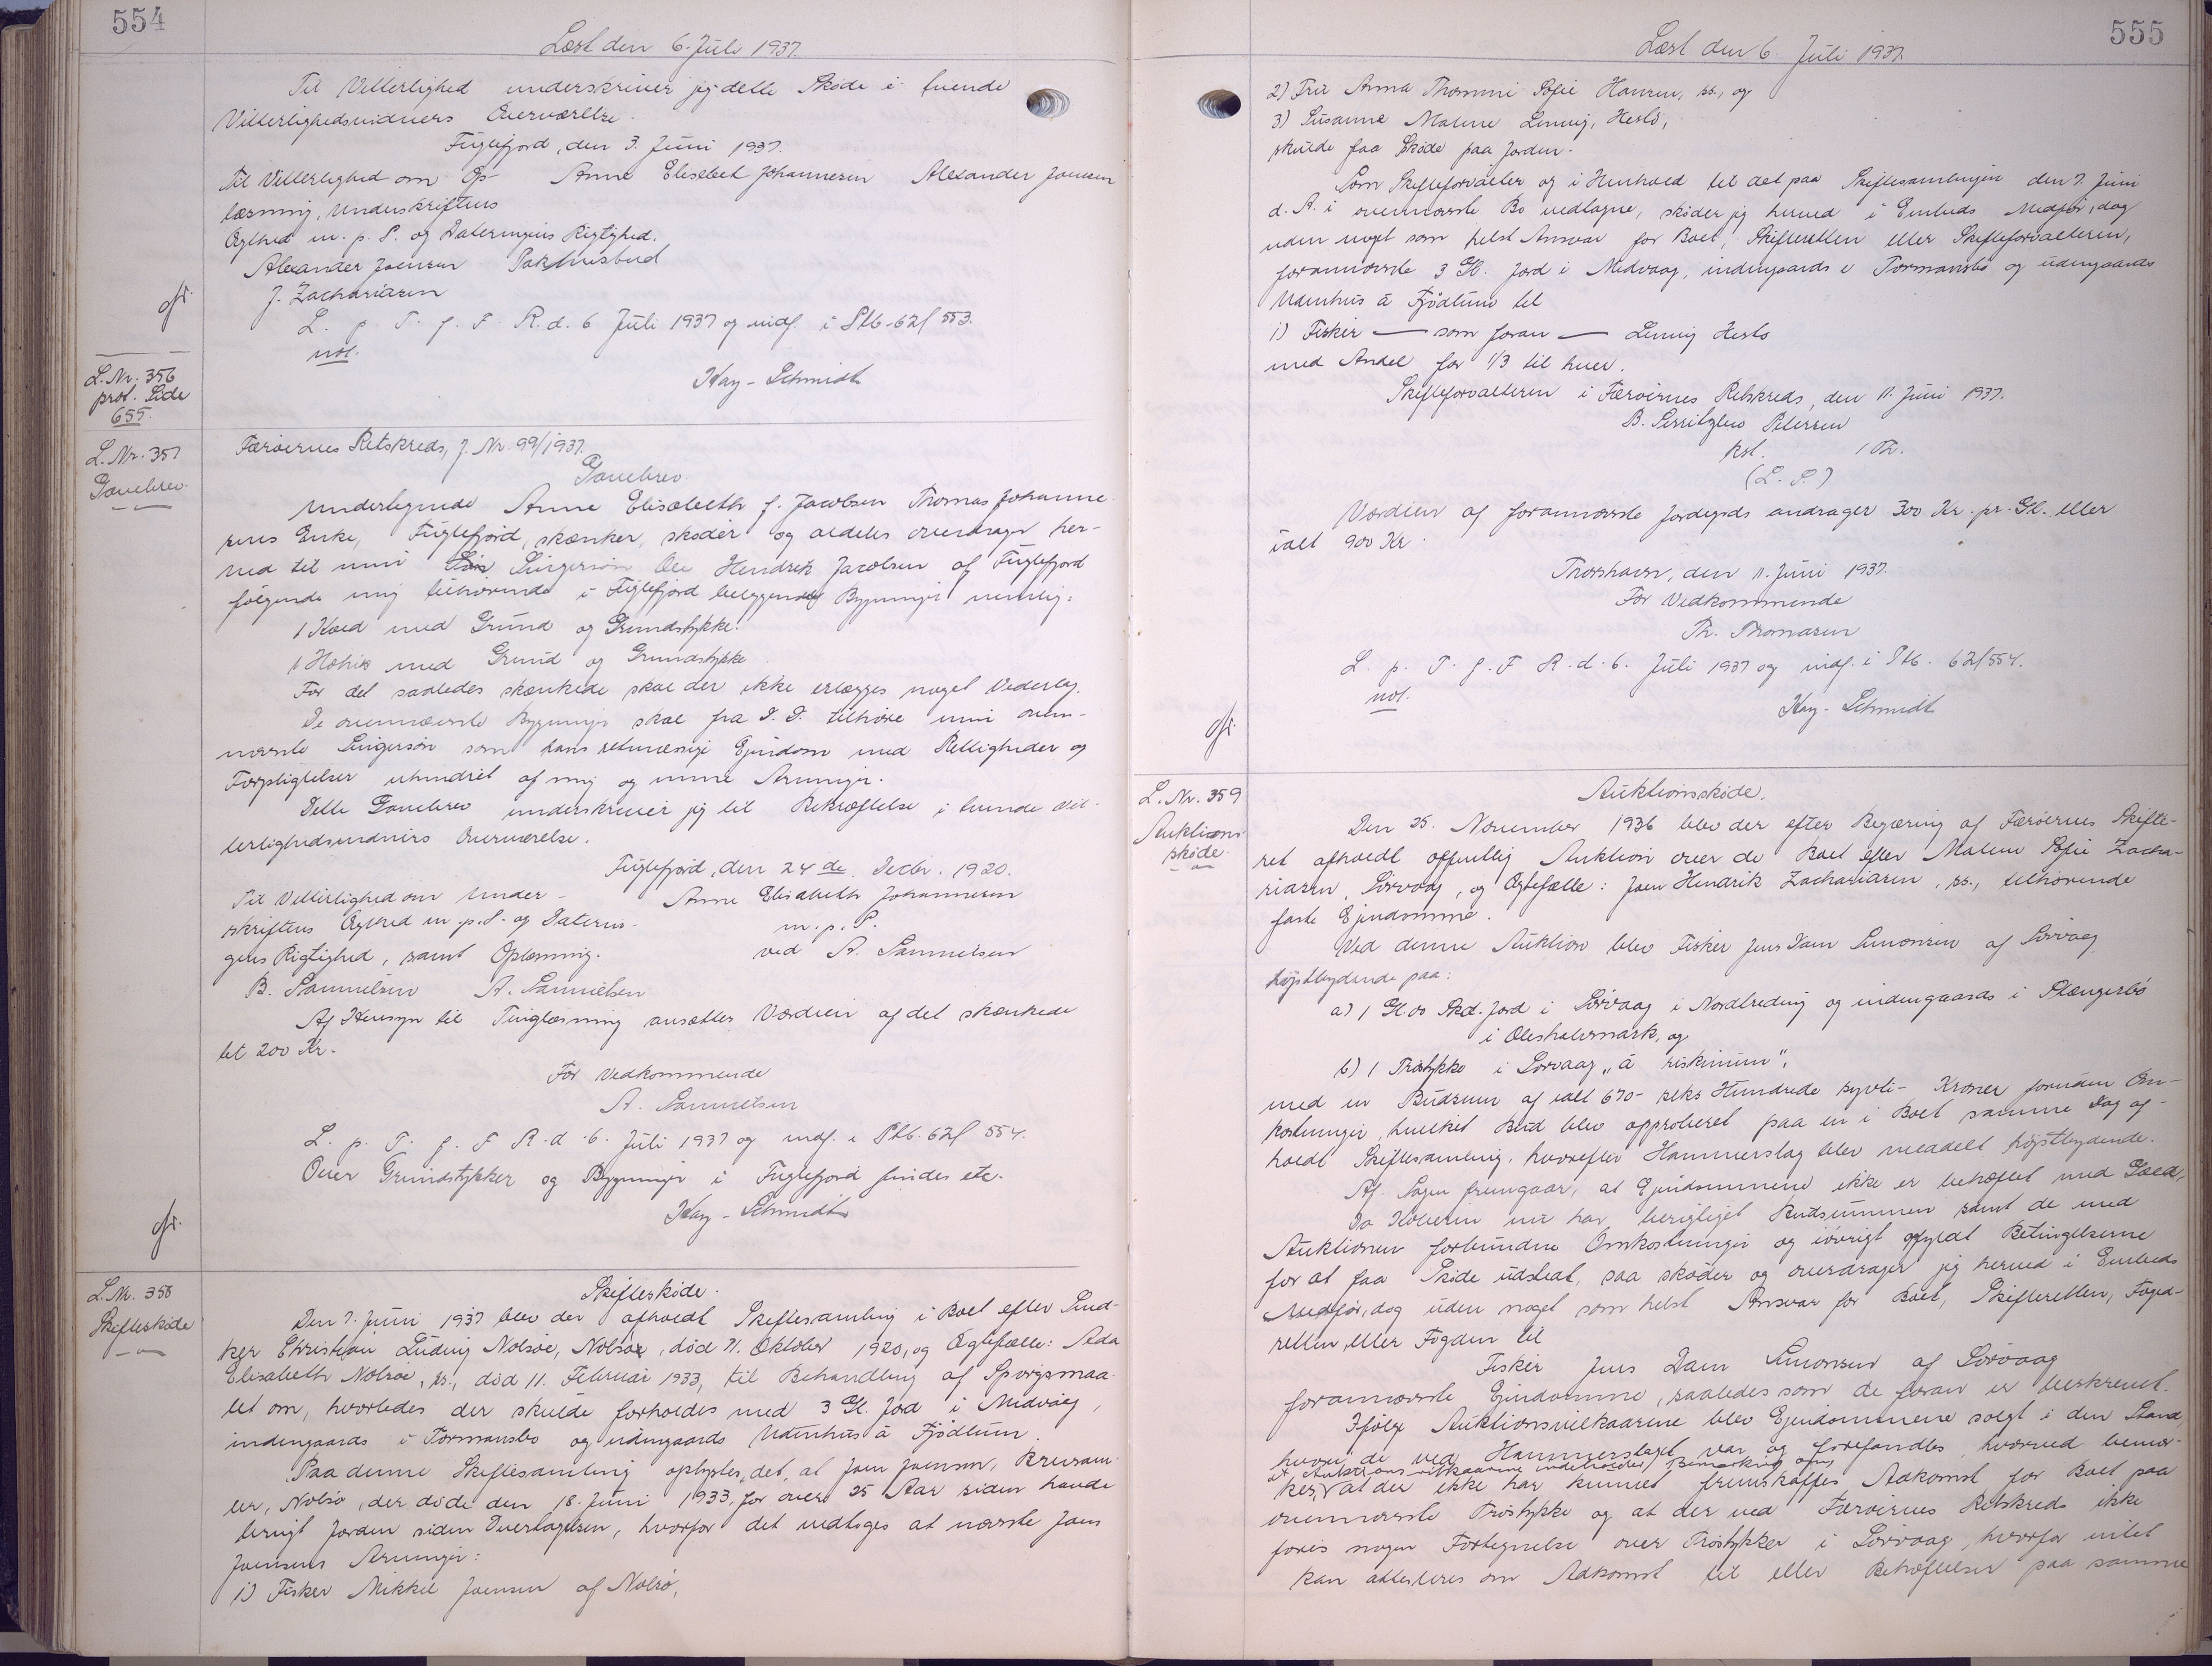 554
Læst den 6. Juli 1937.
Til Vitterlighed underskriver jeg dette Skøde i tvende
Vitterlighedsvidners Overværelse.
Fuglefjord, den 3. Juni 1937.
Til Vitterlighed om Op- Anne Elisabet Johannesen Alexander Joensen
læsning, Underskriftens
Ægthed m. p. P. og Dateringens Rigtighed.
Alexander Joensen Pakhusbud
J. Zachariasen
L. p. T. f. F. R. d. 6 Juli 1937 og indf. i Ptb. 62f 553.
not.
Kay-Schmidt
L. Nr. 356
prot. Side
655.
L. Nr. 357
Gavebrev.
Færøernes Retskreds, J. Nr. 99/1937.
Gavebrev.
Undertegnede Anne Elisabeth f. Jacobsen Thomas Johanne-
sens Enke, Fuglefjord, skænker, skøder og aldeles overdrager her-
ved til min Svigersøn Ole Hendrik Jacobsen af Fuglefjord
følgende mig tilhørende i Fuglefjord beliggende Bygninger nemlig:
1 Koed med Grund og Grundstykke.
1 Høhus med Grund og Grundstykke
For det saaledes skænkede skal der ikke erlægges noget Vederlag.
De ovennævnte Bygninger skal fra D. D. tilhøre min oven-
nævnte Svigersøn som hans retmæssige Ejendom med Rettigheder og
Forpligtelser uhindret af mig og mine Arvinger.
Dette Gavebrev underskriver jeg til Bekræftelse i tvende Vit-
terlighedsvidners Overværelse.
Fuglefjord, den 24de Decbr. 1920.
Til Vitterlighed om Under- Anne Elisabeth Johannesen
skriftens Ægthed m. p. P. og Daterin- m. p. P.
gens Rigtighed, samt Oplæsning. ved A. Samuelsen
B. Samuelsen A. Samuelsen
Af Hensyn til Tinglæsning ansættes Værdien af det skænkede
til 200 Kr.
For Vedkommende
A. Samuelsen
L. p. T. f. F R. d. 6. Juli 1937 og indf. i Ptb. 62f 554.
Over Grundstykker og Bygninger i Fuglefjord findes etc.
Kay-Schmidt
L. Nr. 358
Skifteskøde
Skifteskøde.
Den 7. Juni 1937 blev der afholdt Skiftesamling i Boet efter Snd-
ker Christian Ludvig Nolsøe, Nolsøe, død 21. Oktober 1920, og Ægtefælle: Ada
Elisabeth Nolsøe, ss., død 11. Februar 1933, til Behandling af Spørgsmaa-
let om, hvorledes der skulde forholdes med 3 Gl. Jord i Midvaag,
indengaards i Tormansbø og udengaards Utenhus á Fjødlum.
Paa denne Skiftesamling oplystes det, at Joen Joensen,
Nolsø, der døde den 18. Juni 1933, for over 25 Aar siden havde
brugt Jorden siden Overtagelsen, hvorfor det vedtoges at nævnte Joen
Joensens Arvinger:
1) Fisker Mikkel Joensen af Nolsø,
555
Læst den 6. Juli 1937.
2) Fru Anna Thommine Sofie Hansen, ss., og
3) Susanne Maline Lenvig, Hestø,
skulde faa Skøde paa Jorden.
Som Skifteforvalter og i Henhold til det paa Skiftesamlingen den 7. Juni
d. A. i ovennævnte Bo vedtagne, skøder jeg herved i Embeds Medfør, dog
uden noget som helst Ansvar for Boet, Skifteretten eller Skifteforvalteren,
forannævnte 3 Gl. Jord i Midvaag, indengaards i Tormansbø og udengaards
Utenhus á Fjødlum til
1) Fisker — som foran — Lenvig Hestø
med Andel for 1/3 til hver.
Skifteforvalteren i Færøernes Retskreds, den 11. Juni 1937.
B. Serritzlew Petersen
kst. / Th.
(L. S.)
Værdien af forannævnte Jordegods andrager 300 Kr. pr. Gl. eller
ialt 900 Kr.
Thorshavn, den 11. Juni 1937.
For Vedkommende
Th. Thomasen
L. p. T. f. F R. d. 6. Juli 1937 og indf. i Ptb. 62f 554.
not.
Kay-Schmidt
L. Nr. 359
Auktions-
skøde
Auktionsskøde.
Den 25. November 1936 blev der efter Begæring af Færøernes Skifte-
ret afholdt offentlig Auktion over de Boet efter Malene Sofie Zacha-
riasen, Sørvaag, og Ægtefælle: Joen Hendrik Zachariasen, ss., tilhørende
faste Ejendomme.
Ved denne Auktion blev Fisker Jens Dam Simonsen af Sørvaag
højstbydende paa:
a) 1 Gl. 00 Skd. Jord i Sørvaag i Nordtreding og indengaards i
i og
b) 1 Trøstykke i Sørvaag "á riskinum",
med en Budsum af ialt 670 - seks Hundrede syvti - Kroner foruden Om-
kostninger, hvilket Bud blev approberet paa en i Boet samme Dag af-
holdt Skiftesamling, hvorefter Hammerslag blev meddelt højstbydende.
Af Sagen fremgaar, at Ejendommene ikke er behæftet med Gæld,
Da Køberen nu har berigtiget Budsummen samt de med
Auktionen forbundne Omkostninger og iøvrigt opfyldt Betingelserne
for at faa Skøde udstedt, saa skøder og overdrager jeg herved i Embeds
Medfør, dog uden noget som helst Ansvar for Boet, Skifteretten, Foged-
retten, eller Fogden til
Fisker Jens Dam Simonsen af Sørvaag
forannævnte Ejendomme, saaledes som de foran er beskrevet.
Ifølge Auktionsvilkaarene blev Ejendommene solgt i den Stand,
hvori de ved Hammerslaget var og forefandtes, hvorved bemær-
at Auktionsvilkaarene indeholder Bemærkning om,
kes, at der ikke har kunnet fremskaffes Adkomst for Boet paa
ovennævnte Trøstykke og at der ved Færøernes Retskreds ikke
føres nogen Fortegnelse over Trøstykker i Sørvaag, hvorfor intet
kan attesteres om Adkomst til eller Behæftelser paa samme